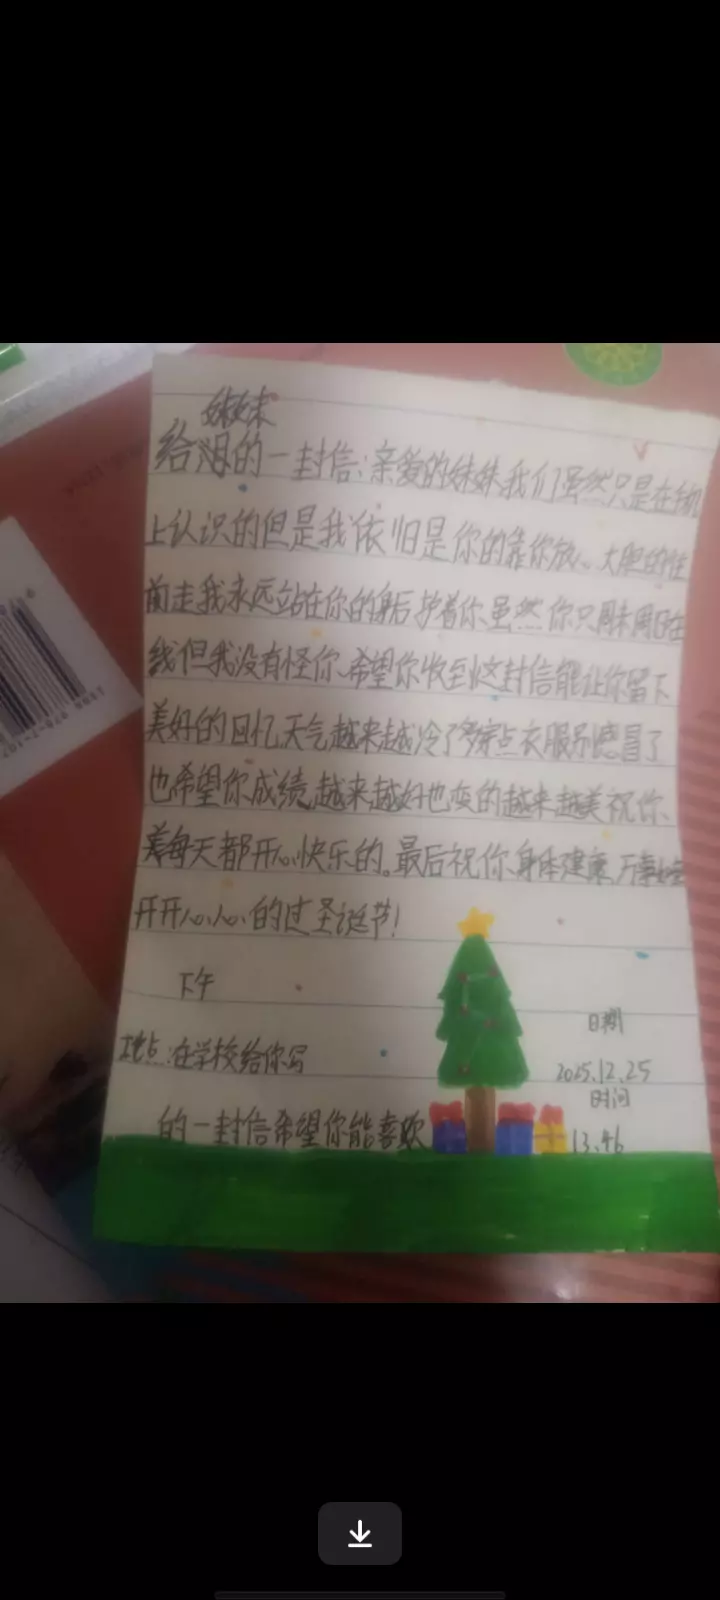 妹妹
给泪的一封信:亲爱的妹妹我们虽然只是在
上认识的但是我依归是你的靠你放心大胆的往
前走我永远站在你的身后护着你虽然你只周末周日在
线但我没有怪你.希望你收到这封信能让你留下
美好的回忆天气越来越冷了多穿点衣服别感冒了
也希望你成绩越来越好也变的越来越美祝你、
美每天都开心快乐的。最后祝你身体健康万事如意
开开心心的过圣诞节!
下午
日期
地点:在学校给你写
2025.12.25
时间
的一封信希望你能喜欢
13.46